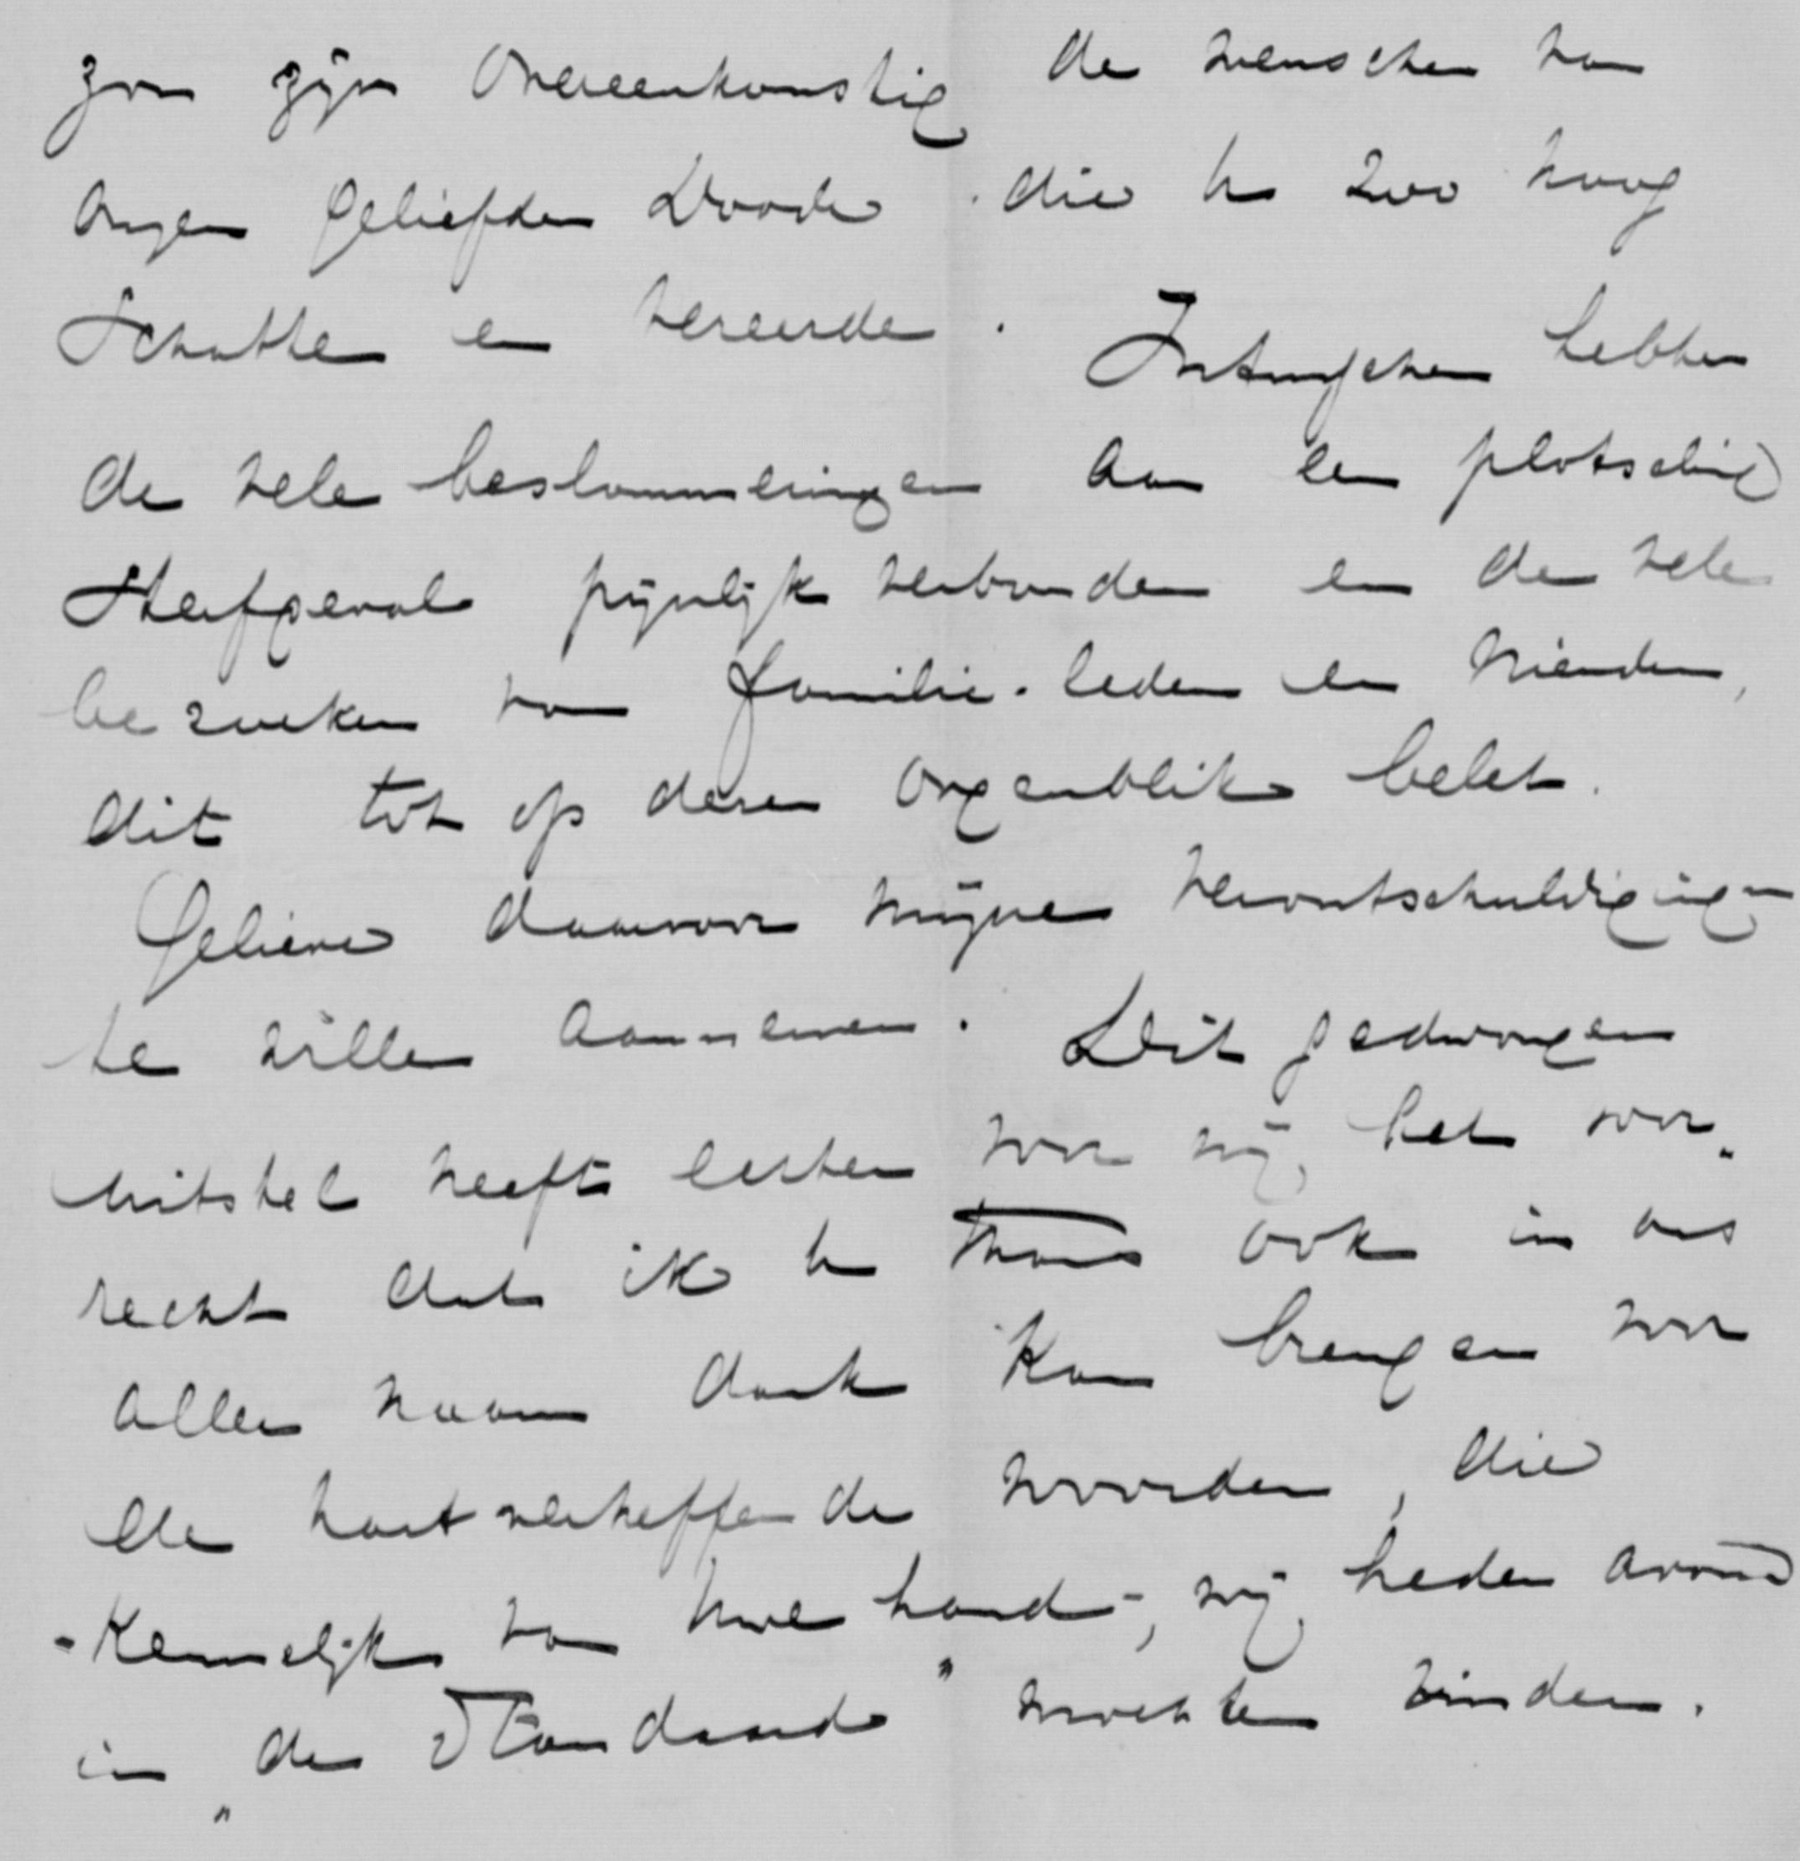 zou zijn overeenkomstig de wenschen van
onzen geliefden Doode die U zoo hoog
schatte en vereerde. Intusschen hebben
de vele beslommeringen aan een plotseling
sterfgeval pijnlijk verbonden en de vele
bezoeken van familie-leden en vrienden,
dit tot op dezen oogenblik belet.
Gelieve daarvoor mijne verontschuldigingen
te willen aannemen. Dit gedwongen
uitstel heeft echter voor mij het voor„
recht dat ik U thans ook in ons
aller naam dank kan brengen voor
de hartverheffende woorden, die
-kennelijk van Uwe hand-, wij heden avond
in „de Standaard" mochten vinden.